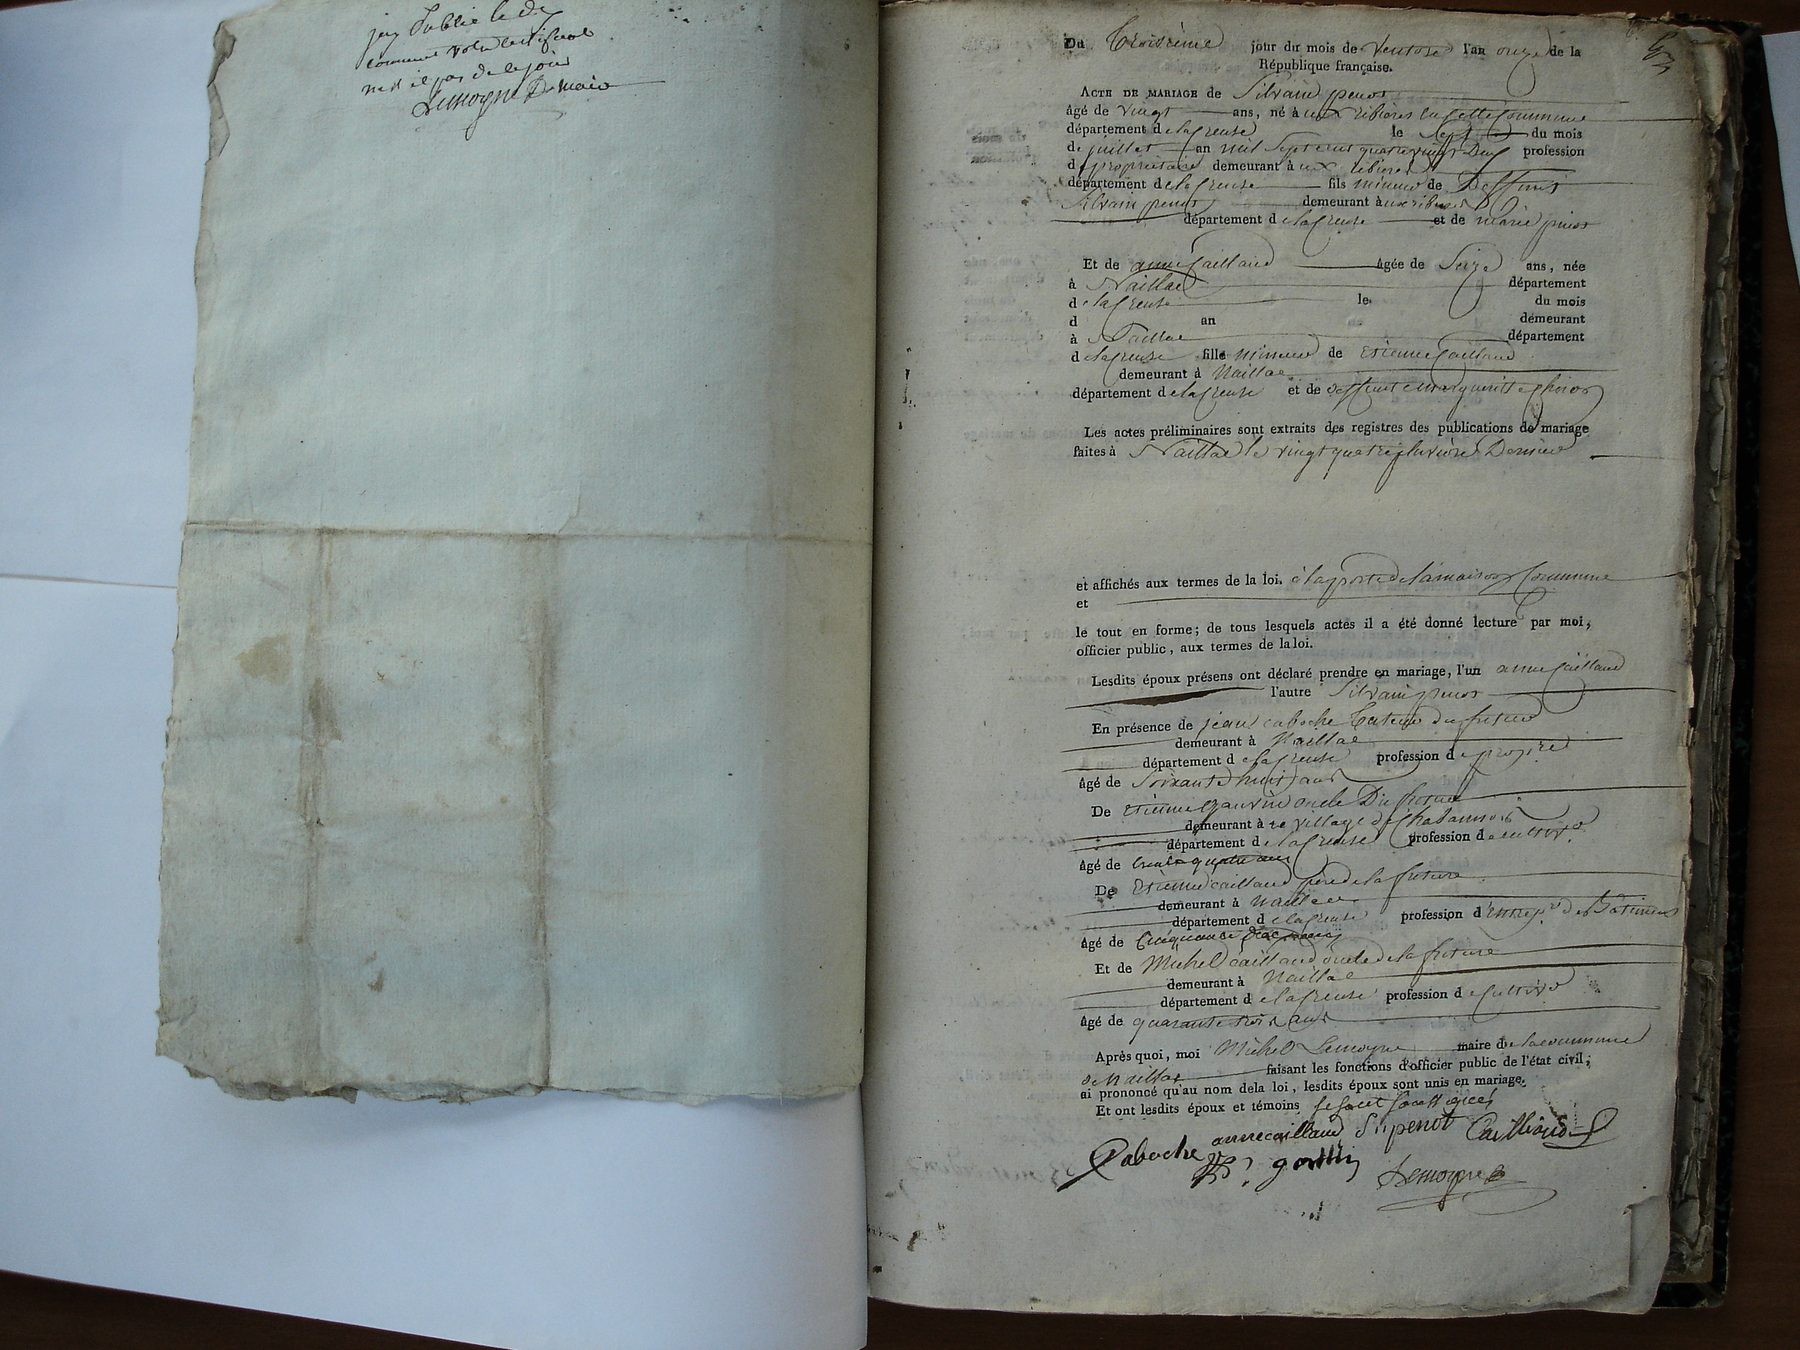 publié le
comme
pas de le jour
Lemoyne Maire
Du troisième jour du mois de ventose l'an onze de la
République française.
ACTE DE MARIAGE de Silvain penot
âgé de vingt ans, né à aux ribieres en cette Commune
département de la Creuse le sept du mois
de juillet an mil sept cent quatrevingt deux profession
de propriétaire demeurant à aux ribieres
département de la Creuse fils mineur de Deffunt
Silvain penot demeurant aux ribieres
département de la Creuse et de marie
Et de anne Caillaud âgée de Seize ans, née
à Naillac département
de la Creuse le du mois
d an demeurant
à Naillac département
de la Creuse fille mineure de etienne Caillaud
demeurant à Naillac
département de la Creuse et de deffunte marguerite
Les actes préliminaires sont extraits des registres des publications de mariage
faites à Naillac le vingt quatre pluviose Dernier
et affichés aux termes de la loi. à la porte de la maison Commune
et
le tout en forme; de tous lesquels actes il a été donné lecture par moi,
officier public, aux termes de la loi.
Lesdits époux présens ont déclaré prendre en mariage, l'un anne Caillaud
l'autre Silvain penot
En présence de jean caboche tuteur du futur
demeurant à Naillac
département de la Creuse profession de propre
âgé de Soixante huit ans
De etienne oncle Du futur
demeurant à ce village de
département de la Creuse profession de cultivr
âgé de trente quatre ans
De Etienne caillaud père de la future
demeurant à Naillac
département de la Creuse profession d'Entrepr de Bâtimens
âgé de Cinquante
Et de Michel caillaud oncle de la future
demeurant à Naillac
département de la Creuse profession de Cultivr
âgé de quarante trois ans
Après quoi, moi Michel Lemoyne maire de la commune
de Naillac faisant les fonctions d'officier public de l'état civil,
ai prononcé qu'au nom de la loi, lesdits époux sont unis en mariage.
Et ont lesdits époux et témoins
anne caillaud S penot Cailliaud
Caboche Lemoyne